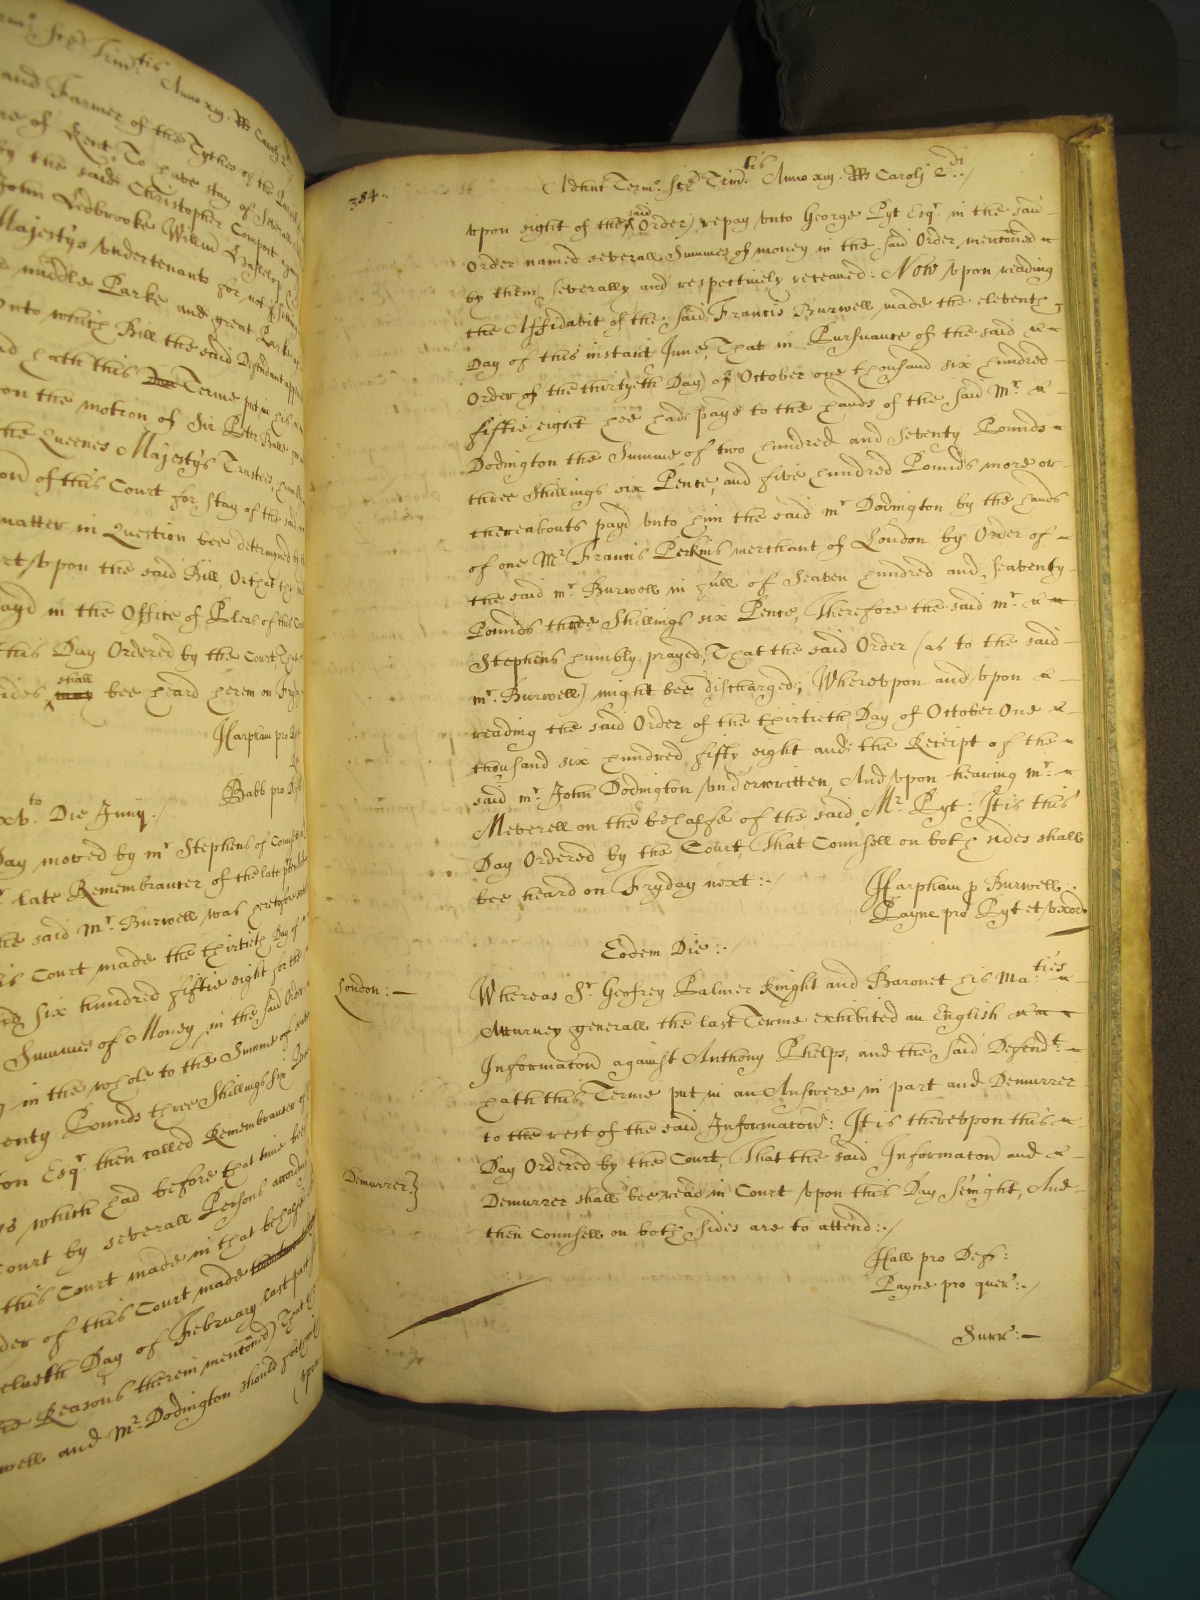 Anno xiij. Rs Caroli 2d
and Farmer of the Tythes of the
of Kent, To have stay of severall
by the said Christopher Compost
John Ledbrooke Willm
Majestys undertenants for not
middle Parke and great Parke
unto which Bill the said Defendant
hath this Terme put in his
on the motion of Sir Peter Ball
the Queenes Majestys Trustees
of this Court for stay of the said
matter in Question bee determyned
upon the said Bill, Or that
in the Office of Pleas of this
this Day Ordered by the Court, That
sides shall bee heard herein on
Harpham pro
Babb pro
xvto. Die Junij./
Day moved by mr. Stephens of
late Remembrancer of the late
the said Mr. Burwell was heretofore
this Court made the thirtieth Day of
six hundred fiftie eight for the
Summe of Money in the said Order
in the whole to the Summe of
Pounds three Shillings six
Esqr. then called Remembrancer of
which had before that time
Court by severall Persons
this Court made in that behalfe
of this Court made
Day of February last past
Reasons therein mentoned) That
and Mr. Dodington should
(upon
384..
Adhuc Termo. Sce Trintis. Anno xiij. Rs Caroli 2di./
upon sight of the said Order) repay unto George Pyt Esqr. in the said
Order named severall Summes of money in the said Order mentoned
by them severally and respectively receaved: Now upon reading
the Affidavit of the said Francis Burwell made the eleventh
Day of this instant June, That in Pursuance of the said
Order of the thirtyeth Day of October one thousand six hundred
fiftie eight hee had payd to the hands of the said Mr.
Dodington the Summe of two hundred and seventy Pounds
three Shillings six Pence, and five hundred Pounds more or
thereabouts payd unto him the said mr Dodington by the hands
of one Mr. Francis Perkins merchant of London by Order of
the said mr. Burwell in full of Seaven hundred and seaventy
Pounds three Shillings six Pence, Therefore the said mr.
Stephens humbly prayed, That the said Order (as to the said
mr. Burwell) might bee discharged; Whereupon and upon
reading the said Order of the thirtieth Day of October One
thousand six hundred fifty eight and the Receipt of the
said mr. John Dodington underwritten, And upon hearing mr.
Meverell on the behalfe of the said Mr. Pyt: It is this
Day Ordered by the Court, That Counsell on both sides shall
bee heard on Fryday next:./
Harpham p Burwell:.
Payne pro Pyt et uxor
Eodem Die:./
London:
Whereas Sr. Geofrey Palmer Knight and Baronet his Maties
Atturney generall the last Terme exhibited an English
Informaton against Anthony Phelps, and the said Defendt.
hath this Terme put in an Answere in part and Demurrer
to the rest of the said Informaton: It is thereupon this
Day Ordered by the Court, That the said Informaton and
Demurrer}
Demurrer shall bee read in Court upon this Day Senight, And
then Counsell on both sides are to attend:./
Hall pro Def:
Payne pro quer:./
Surr: